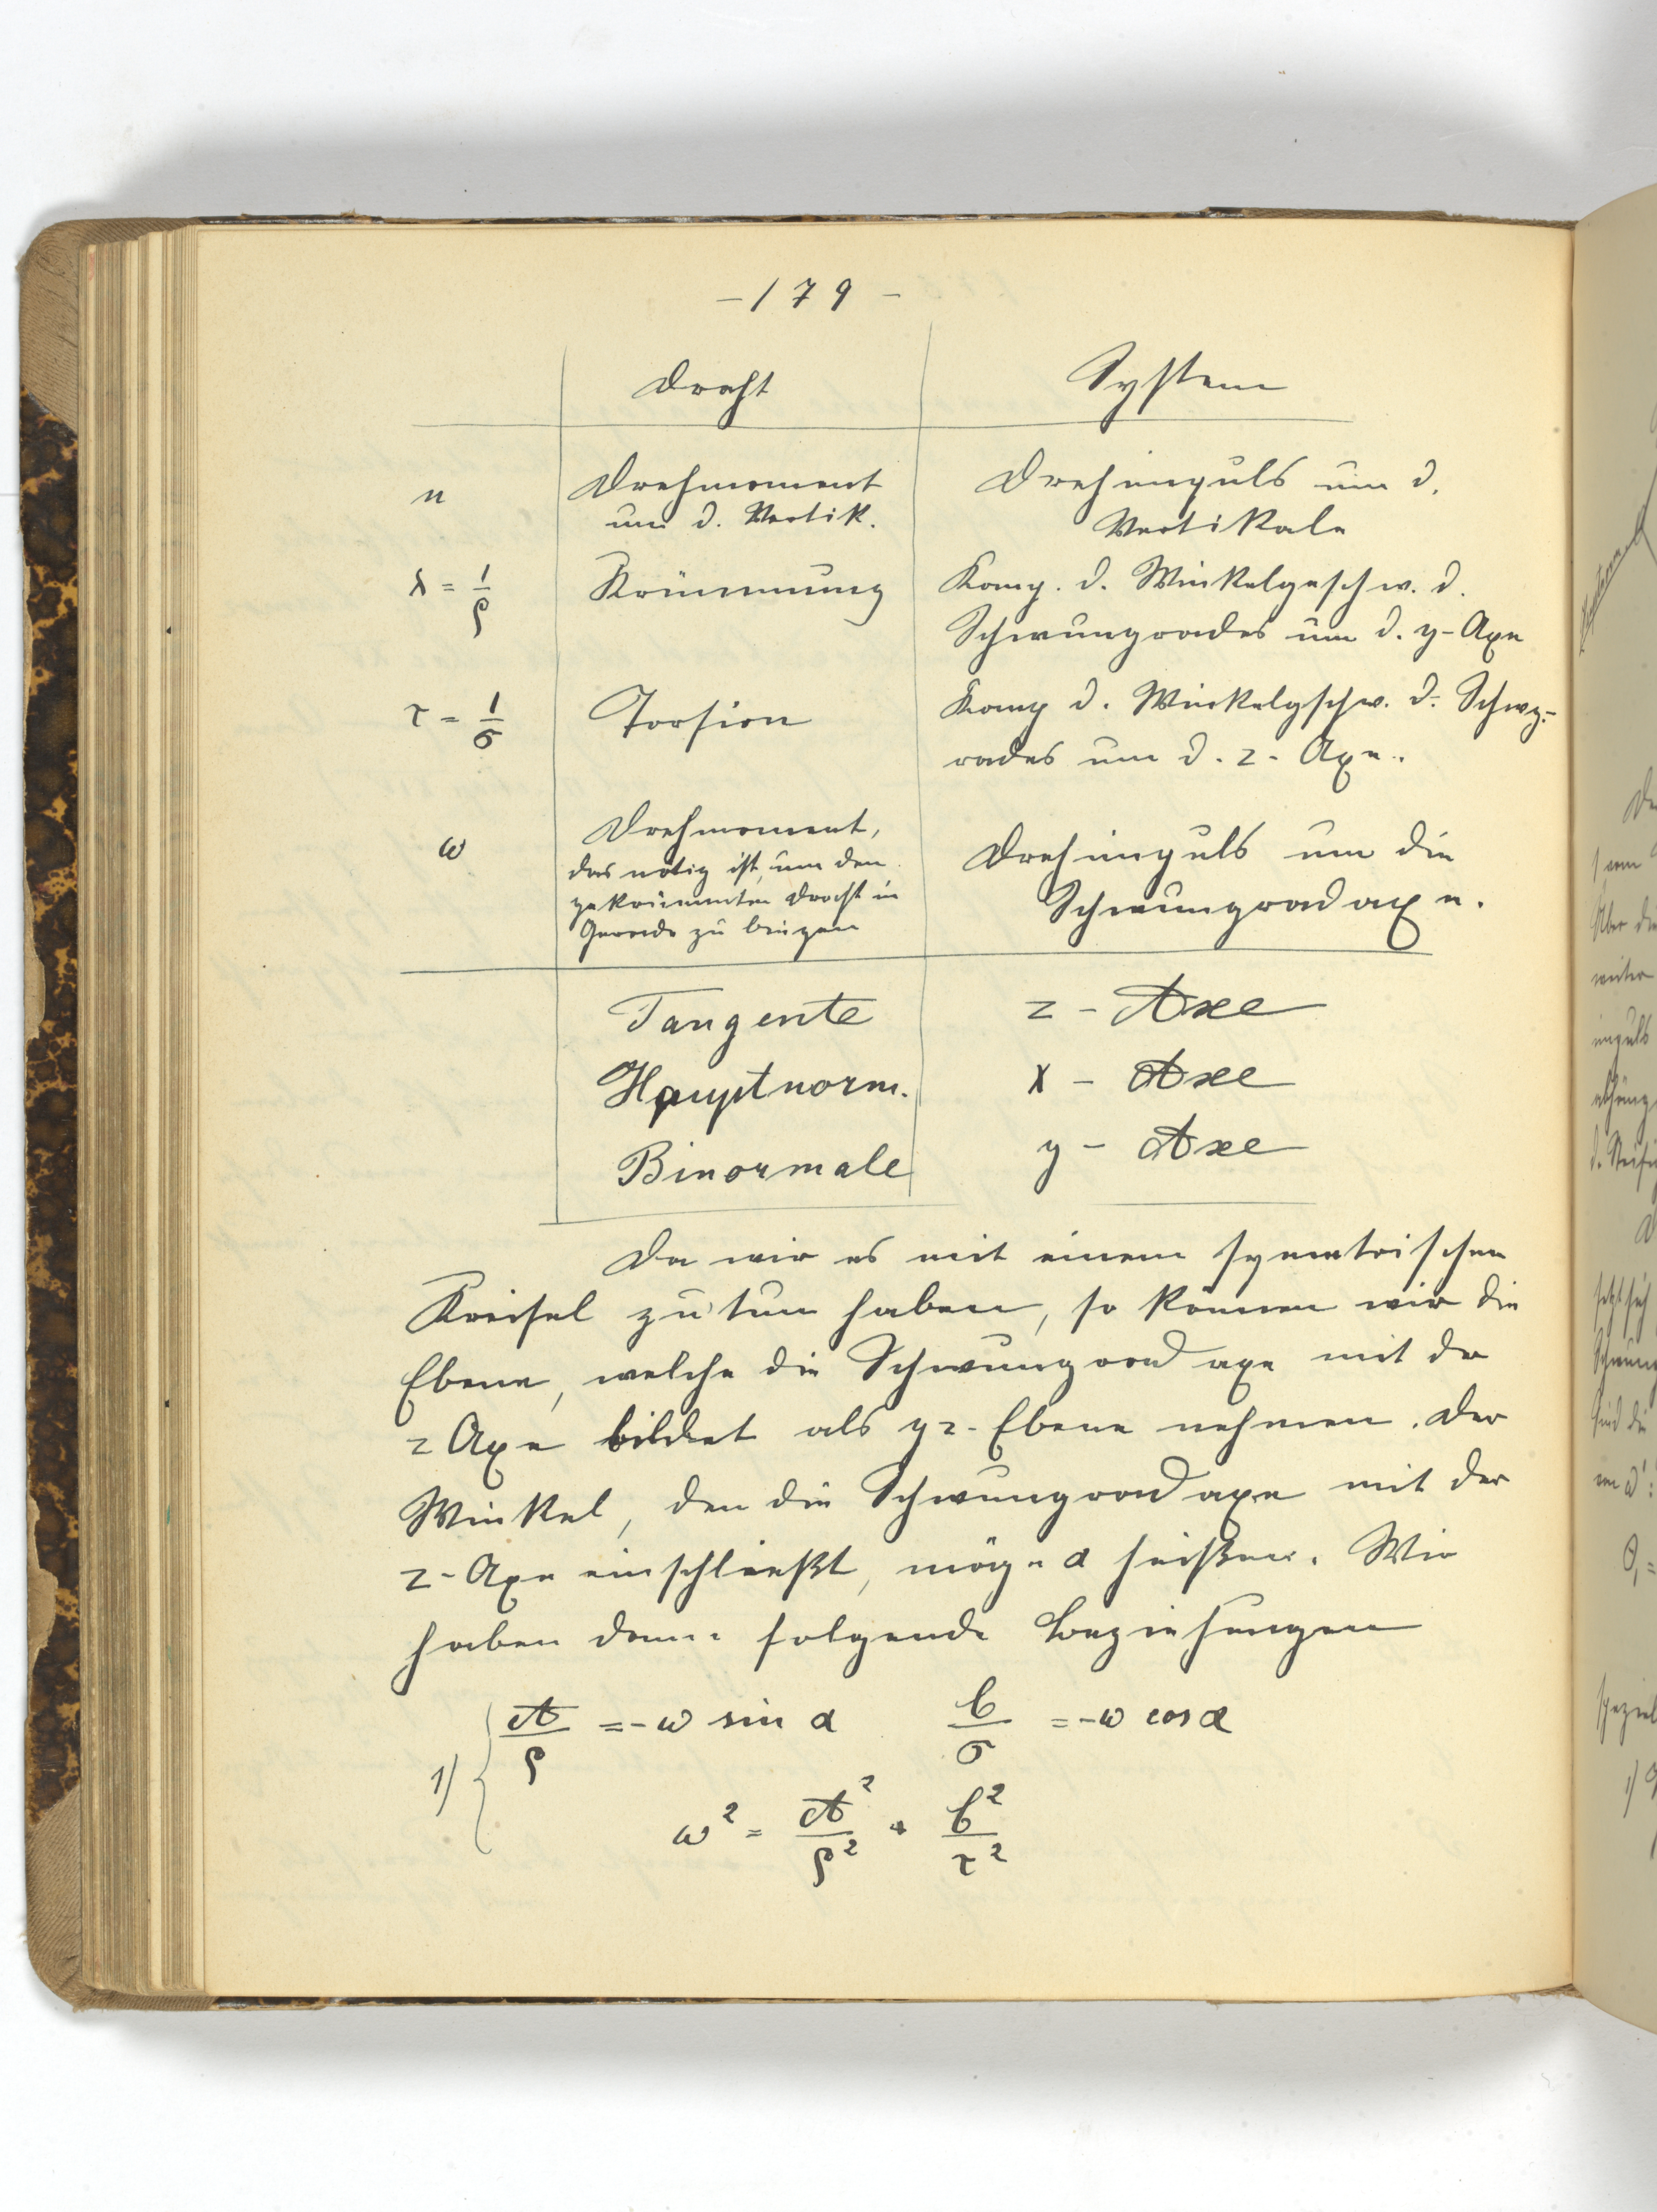 - 179 -
Draht System
n Drehmoment um d. Vertik. Drehimpuls um d. Vertikale
ϰ = 1/ρ Krümmung Komp. d. Winkelgeschw. d. Schwungrades um d. y-Axe
τ = 1/σ Torsion Komp d. Winkelgschw. d. Schwg.-
rades um d. z-Axe.
ω Drehmoment,
das nötig ist, um den
gekrümmten Draht in
Gerade zu bringen
Drehimpuls um die
Schwungradaxe.
Tangente z - Axe
Hauptnorm. x - Axe
Binormale y - Axe
Da wir es mit einem symetrischen
Kreisel zu tun haben, so können wir die
Ebene, welche die Schwungradaxe mit der
z Axe bildet als yz-Ebene nehmen. Der
Winkel, den die Schwungradaxe mit der
z-Axe einschließt, möge α heißen. Wir
haben dann folgende Beziehungen
1) { A/ρ = -ω sin α C/σ = -ω cos α
ω² = A²/ρ² + C²/τ²